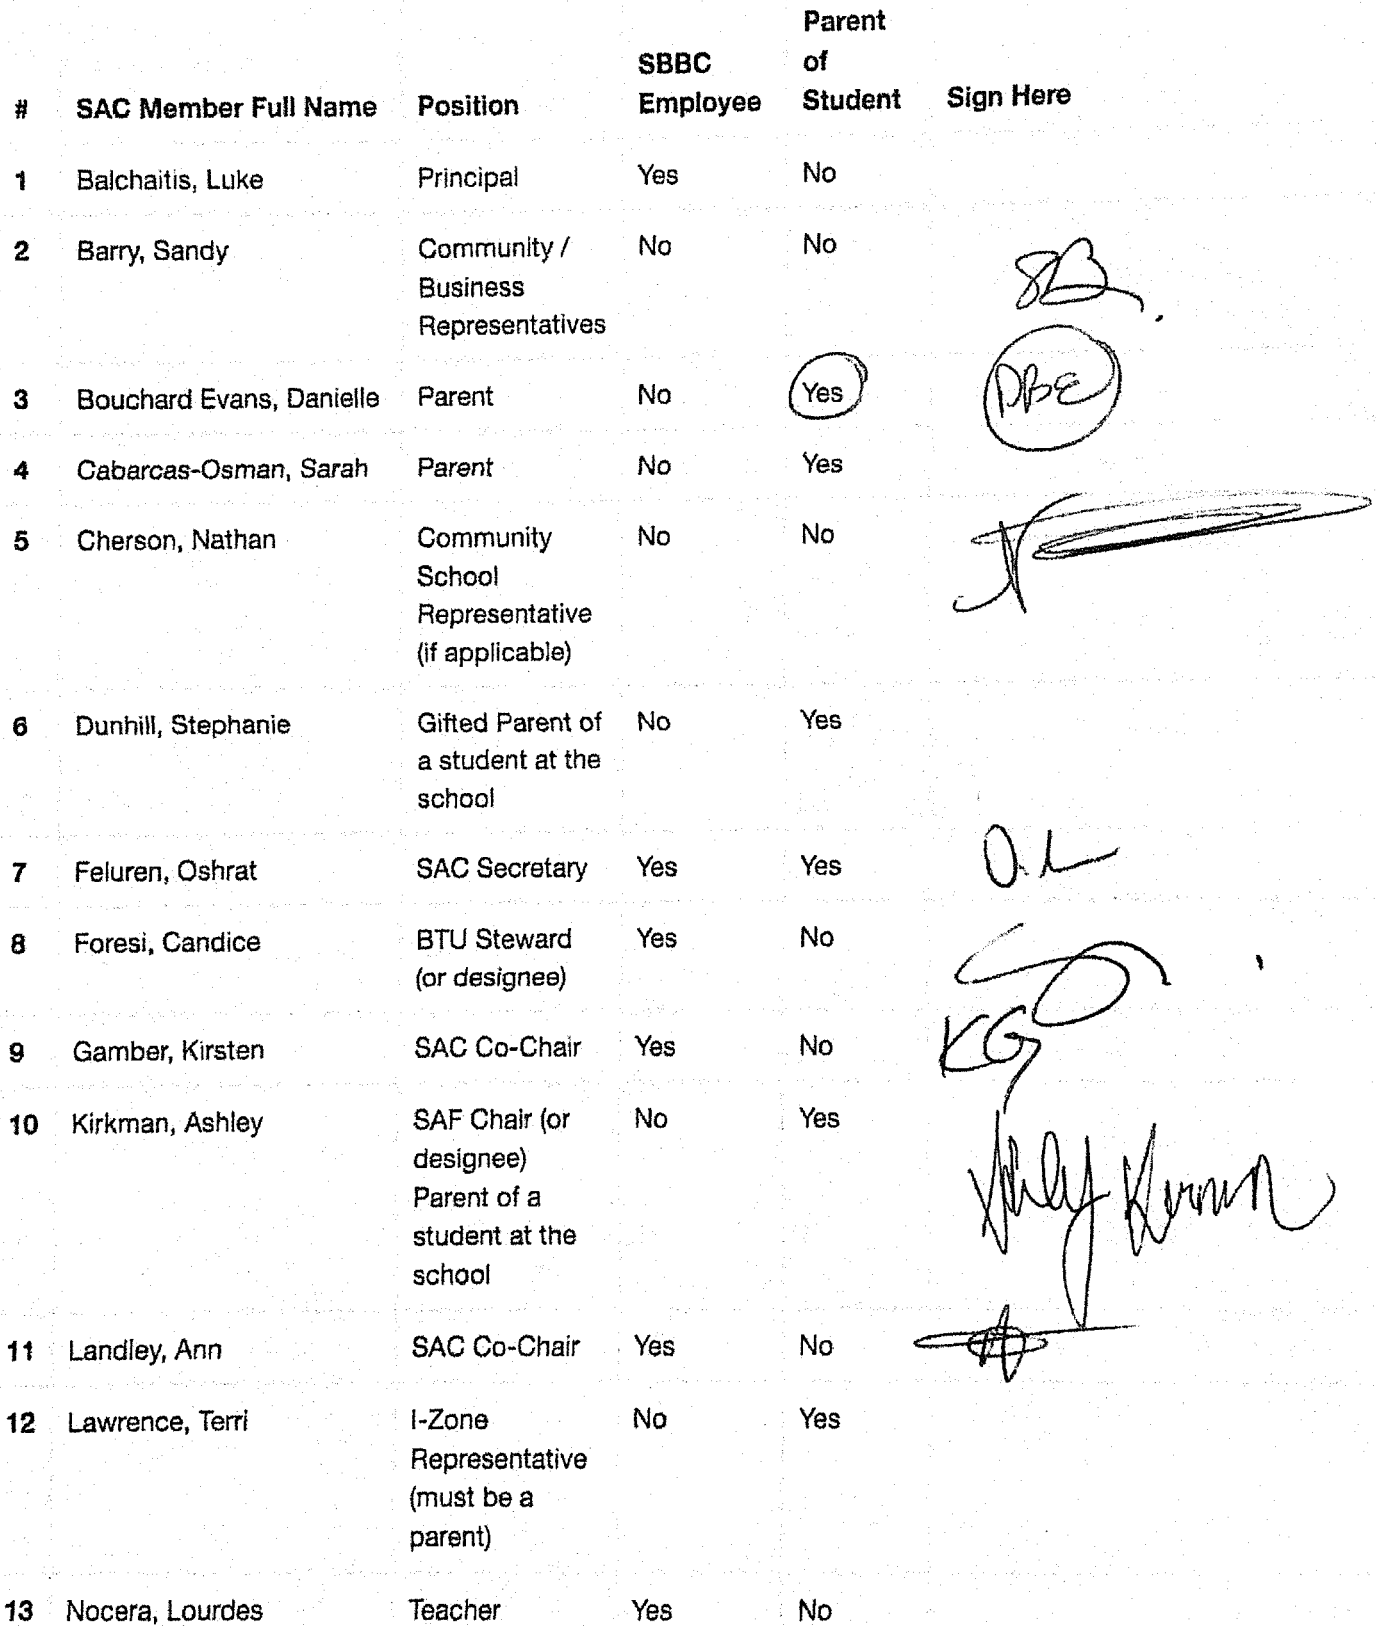 # SAC Member Full Name Position SBBC Employee Parent of Student Sign Here
1 Balchaitis, Luke Principal Yes No
2 Barry, Sandy Community / No No SB
Business
Representatives
3 Bouchard Evans, Danielle Parent No Yes DBE
4 Cabarcas-Osman, Sarah Parent No Yes
5 Cherson, Nathan Community No No
School
Representative
(if applicable)
6 Dunhill, Stephanie Gifted Parent of No Yes
a student at the
school
7 Feluren, Oshrat SAC Secretary Yes Yes
8 Foresi, Candice BTU Steward Yes No
(or designee)
9 Gamber, Kirsten SAC Co-Chair Yes No KG
10 Kirkman, Ashley SAF Chair (or No Yes
designee)
Parent of a
student at the
school
11 Landley, Ann SAC Co-Chair Yes No
12 Lawrence, Terri I-Zone No Yes
Representative
(must be a
parent)
13 Nocera, Lourdes Teacher Yes No